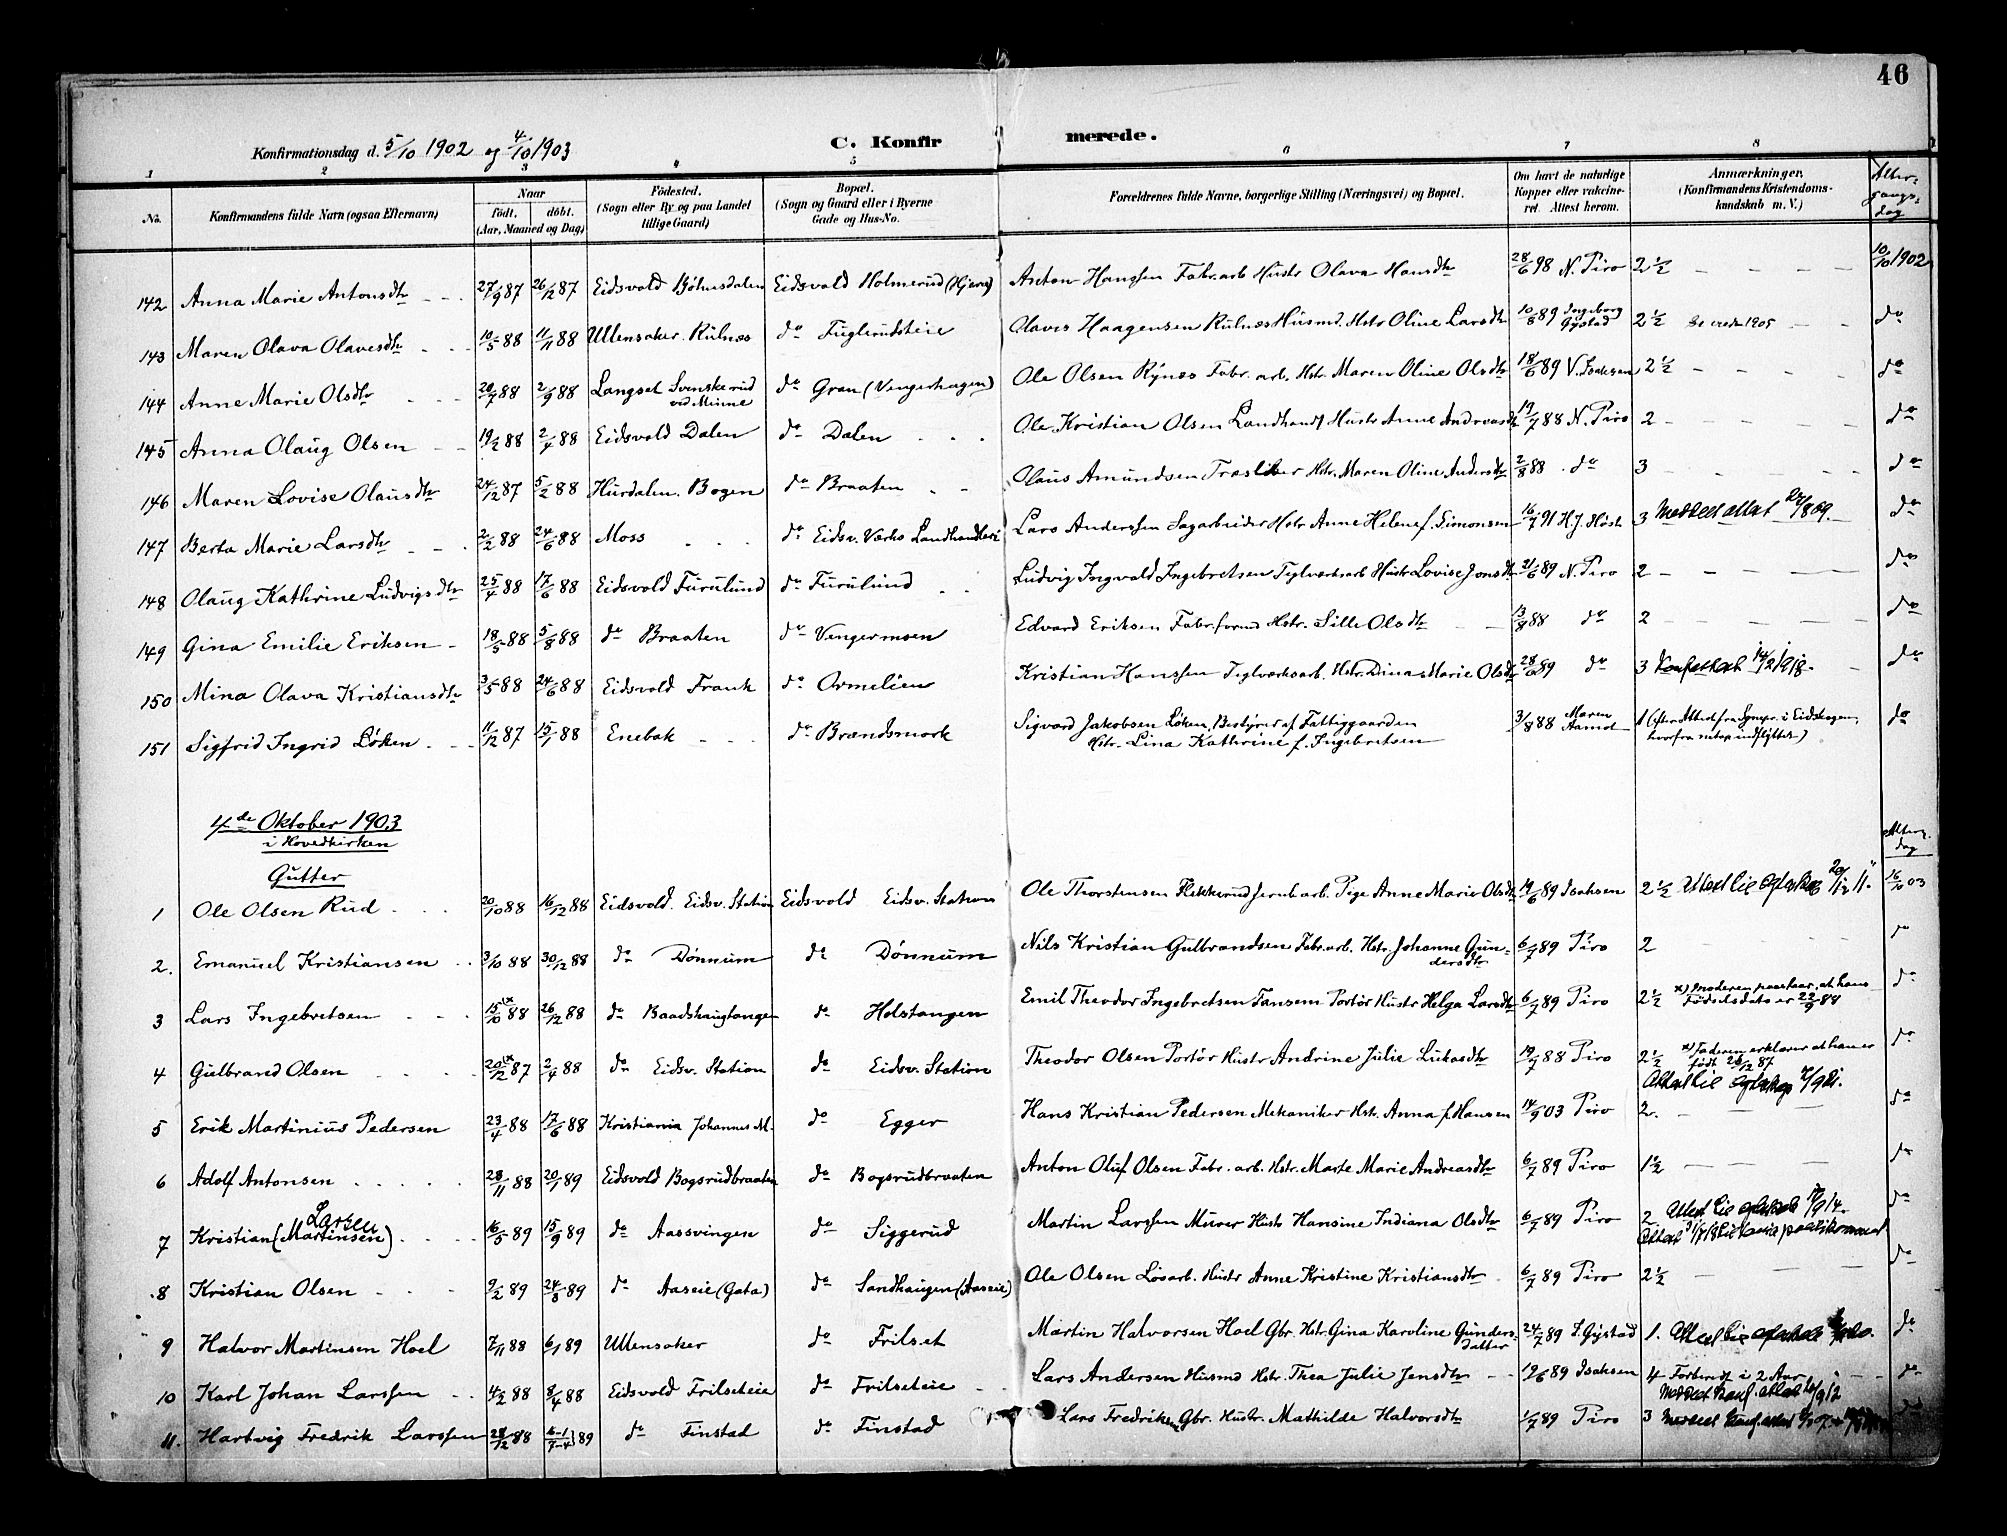 46
Konfirmationsdag d. 5/10 1902 og 4/10 1903
C. Konfirmerede.
1 2 3 4 5 6 7 8
No. Konfirmandens fulde Navn (ogsaa Efternavn) Naar født, døbt. (Aar, Maaned og Dag) Fødested. (Sogn eller By og paa Landet tillige Gaard) Bopæl. (Sogn og Gaard eller i Byerne Gade og Hus-No. Forældrenes fulde Navne, borgerlige Stilling (Næringsvei) og Bopæl. Om havt de naturlige Kopper eller vaccineret. Attest herom. Anmærkninger. (Konfirmandens Kristendomskundskab m. V.) Altergangsdag
142 Anna Marie Antonsdtr 27/9 87 26/12 87 Eidsvold Bøhnsdalen Eidsvold Holmerud (Hjera) Anton Hanssen Fabr.arb Hustr Olava Hansdtr 28/6 98 N. Piro 2 1/2 10/10 1902
143 Maren Olava Olavesdtr 10/5 88 11/11 88 Ullensaker Kulnes do Fuglerudsteie Olaves Haagensen Kulnes Husmd. Hstr Oline Larsdtr 10/8 89 Ingeborg Gystad 2 1/2 do
144 Anne Marie Olsdtr 20/7 88 2/9 88 Langset Svenskerud ved Minne do Gran (Vengerhagen) Ole Olsen Rynes Fabr. arb. Hstr. Maren Oline Olsdtr 18/6 89 N. Isaksen 2 1/2 do
145 Anna Olaug Olsen 19/2 88 2/4 88 Eidsvold Dalen do Dalen Ole Kristian Olsen Landhandl Hustr Anne Andreasdtr 19/7 88 N. Piro 2 do
146 Maren Lovise Olausdtr 24/12 87 5/2 88 Hurdalen. Bogen do Braaten Olaus Amundsen Træsliber Hstr. Maren Oline Andersdtr 2/8 88 do 3 do
147 Berta Marie Larsdtr 2/2 88 24/6 88 Moss do Eidsv. Værks Landhandleri Lars Anderssen Sagarbeider Hstr Anne Helene f. Simonsen 16/7 91 H.J. Høst 3 Meddelt attest 27/8 09. do
148 Olaug Kathrine Ludvigsdtr 25/4 88 17/6 88 Eidsvold Furulund do Furulund Ludvig Ingvald Ingebretsen Teglværksarb Hustr Lovise Jonsdtr 21/6 89 N. Piro 2 do
149 Gina Emilie Eriksen 18/5 88 5/8 88 do Braaten do Vengermoen Edvard Eriksen Fabr.formd Hstr. Sille Olsdtr 13/8 88 do 2 do
150 Mina Olava Kristiansdtr 3/5 88 24/6 88 Eidsvold Frank do Ormelien Kristian Hanssen Teglværksarb. Hstr. Dina Marie Olsdtr 28/6 89 do 3 14/2 1918. do
151 Sigfrid Ingrid Løken 11/12 87 15/1 88 Enebak do Brandsmork Sigvard Jakobsen Løken, Bestyrer af Fattiggaarden Hstr. Lina Kathrine f. Ingebretsen 3/8 88 Maren Aamot 1 (efter Attest fra Sognpr. i Eidskogen, hvorfra netop indflyttet) do
4de Oktober 1903
i Hovedkirken
Gutter
Alterg. dag
1 Ole Olsen Rud 20/10 88 16/12 88 Eidsvold. Eidsv. Station Eidsvold Eidsv. Station Ole Thorstensen Flekkerud Jernb.arb. Pige Anne Marie Olsdtr 19/6 89 Isaksen 2 1/2 16/10 03
2. Emanuel Kristiansen 3/10 88 30/12 88 do Dønnum do Dønnum Nils Kristian Gulbrandsen Fabr.arb. Hstr. Johanne Gundersdtr 6/7 89 Piro 2 do
3 Lars Ingebretsen 15/10 x 88 26/12 88 do Baadshaugtangen do Holstangen Emil Theodor Ingebretsen Tansem Portør Hustr Helga Larsdtr 6/7 89 Piro 2 1/2 x) moderen paastaar, at hans Fødselsdato er 22/9 88 do
4 Gulbrand Olsen 20/12 x 87 2/4 88 do Eidsv. Station do Eidsv. Station Theodor Olsen Portør Hustr Andrine Julie Lukasdtr 19/7 88 Piro 2 1/2 x) Faderen erklærer at han er født 26/12 87 do
5 Erik Martinius Pedersen 23/4 88 17/6 88 Kristiania Johannes M. do Egger Hans Kristian Pedersen Mekaniker Hstr. Anna f. Hansen 14/9 03 Piro 2. do
6 Adolf Antonsen 28/11 88 20/1 89 Eidsvold Bogsrudbraaten do Bogsrudbraaten Anton Oluf Olsen Fabr. arb. Hstr. Marte Marie Andreasdtr 6/7 89 Piro 1 1/2 do
7 Kristian (Martinsen) Larsen 16/5 89 15/9 89 do Aassvingen do Siggerud Martin Larssen Murer Hustr Hansine Indiana Olsdtr 6/7 89 Piro 2 do
8 Kristian Olsen 9/2 89 24/3 89 do Aaseie (Gata) do Sandhaugen (Aaseie) Ole Olsen Løsarb. Hustr Anne Kristine Kristiansdtr 6/7 89 Piro 2 1/2 do
9 Halvor Martinsen Hoel 7/11 88 6/1 89 Ullensaker do Frilset Martin Halvorsen Hoel Gbr. Hstr. Gina Karoline Gundersdatter 24/7 89 I. Gystad 1. do
10 Karl Johan Larssen 4/2 88 8/4 88 Eidsvold Frilseteie do Frilseteie Lars Andersen Husmd Hstr. Thea Julie Jensdtr 19/6 89 Isaksen 4 Forberedt i 2 Aar do
11. Hartvig Fredrik Larssen 28/12 88 89 do Finstad do Finstad Lars Fredriksen Gbr. Hustr. Mathilde Halvorsdtr 1/7 89 Piro 3 do